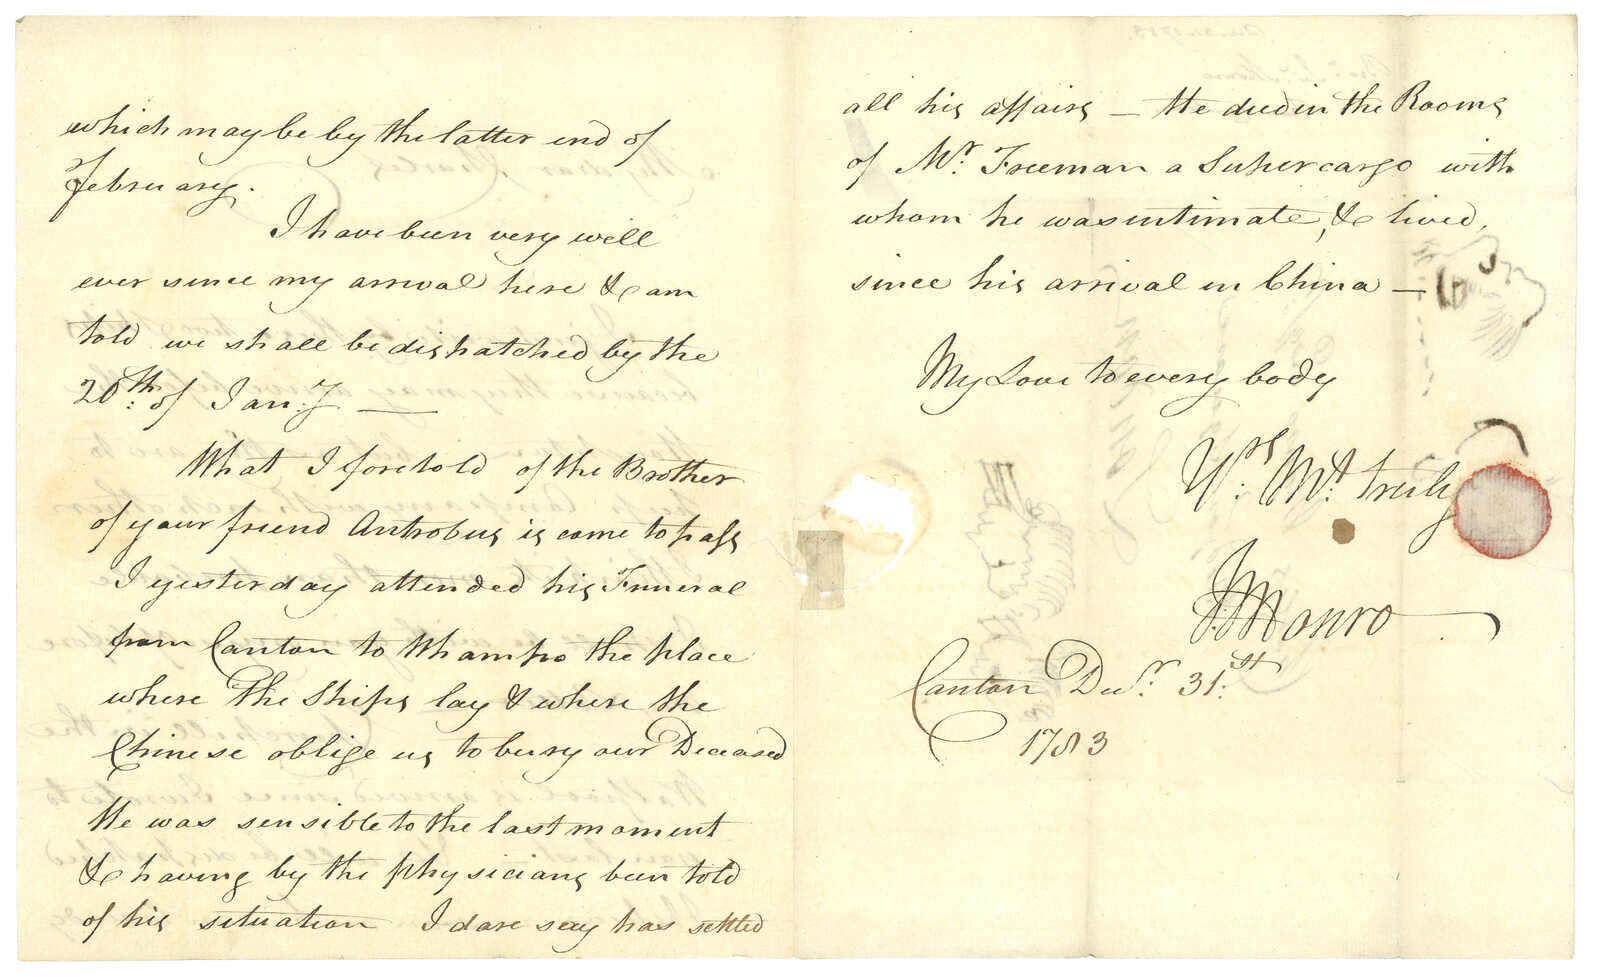 which may be by the latter end of
February.
I have been very well
ever since my arrival here & am
told we shall be dispatched by the
20th: of Jan:y —
What I foretold of the Brother
of your friend Antrobus is come to pass
I yesterday attended his Funeral
from Canton to Whampo the place
where the Ships lay & where the
Chinese oblige us to bury our Deceased
He was sensible to the last moment
& having by the Physicians been told
of his situation I dare say has settled
all his affairs — He died in the Rooms
of Mr. Freeman a Supercargo with
whom he was intimate, & lived,
since his arrival in China —
My Love to every body
Yrs: Mt: truly
J: Monro
Canton Decr: 31:st
1783